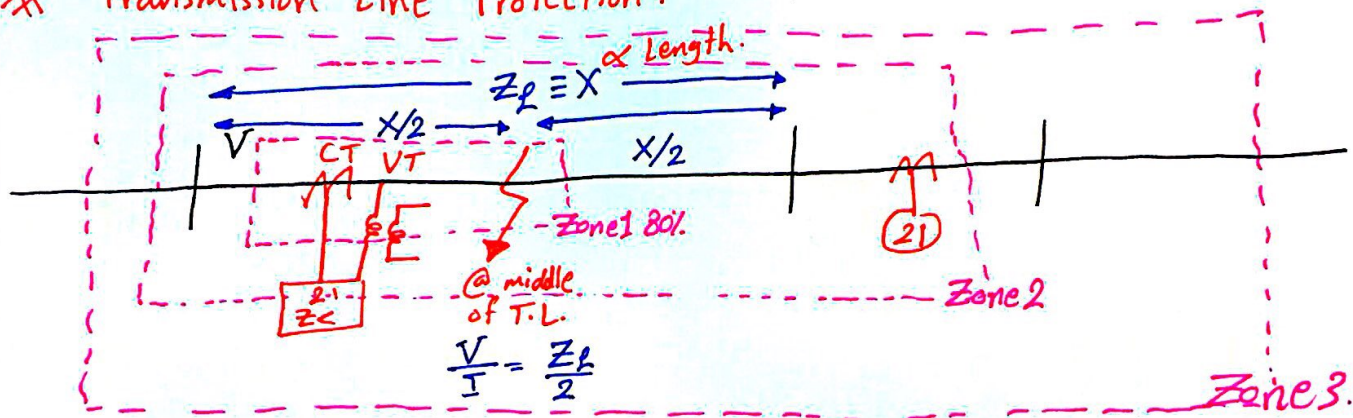 * Transmission Line Protection:
∝ Length.
Zℓ ≡ X
X/2
X/2
V
CT
VT
Zone1 80%
21
21
Z<
@ middle
of T.L.
Zone2
V/I = Zℓ/2
Zone3.